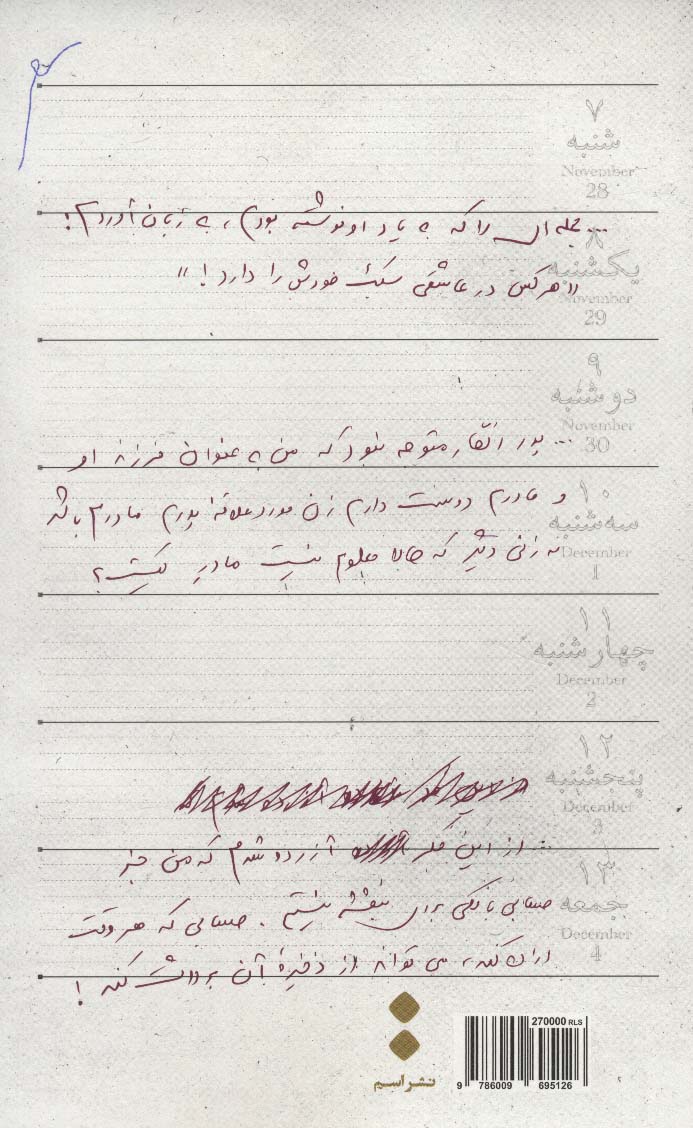 ۷
شنبه
November
28
... جمله‌ای را که به یاد او نوشته بودم، به زبان آوردم!
۸
یکشنبه
«هرکس در عاشقی سبک خودش را دارد!»
November
29
۹
دوشنبه
November
30
... پدر انگار متوجه نبود که من به عنوان فرزند او
۱۰
و مادرم دوست دارم زن مورد علاقهٔ پدرم مادرم باشد
سه‌شنبه
نه زنی دیگر که حالا معلوم نیست مادرِ کیست؟
December
1
۱۱
چهارشنبه
December
2
۱۲
پنجشنبه
December
3
... از این فکر آزرده شدم که من جز
۱۳
حسابی بانکی برای بنفشه نیستم. حسابی که هر وقت
جمعه
December
4
اراده کند، می‌تواند از ذخیرهٔ آن برداشت کند!
نشر اسم
270000 RLS
9 786009 695126